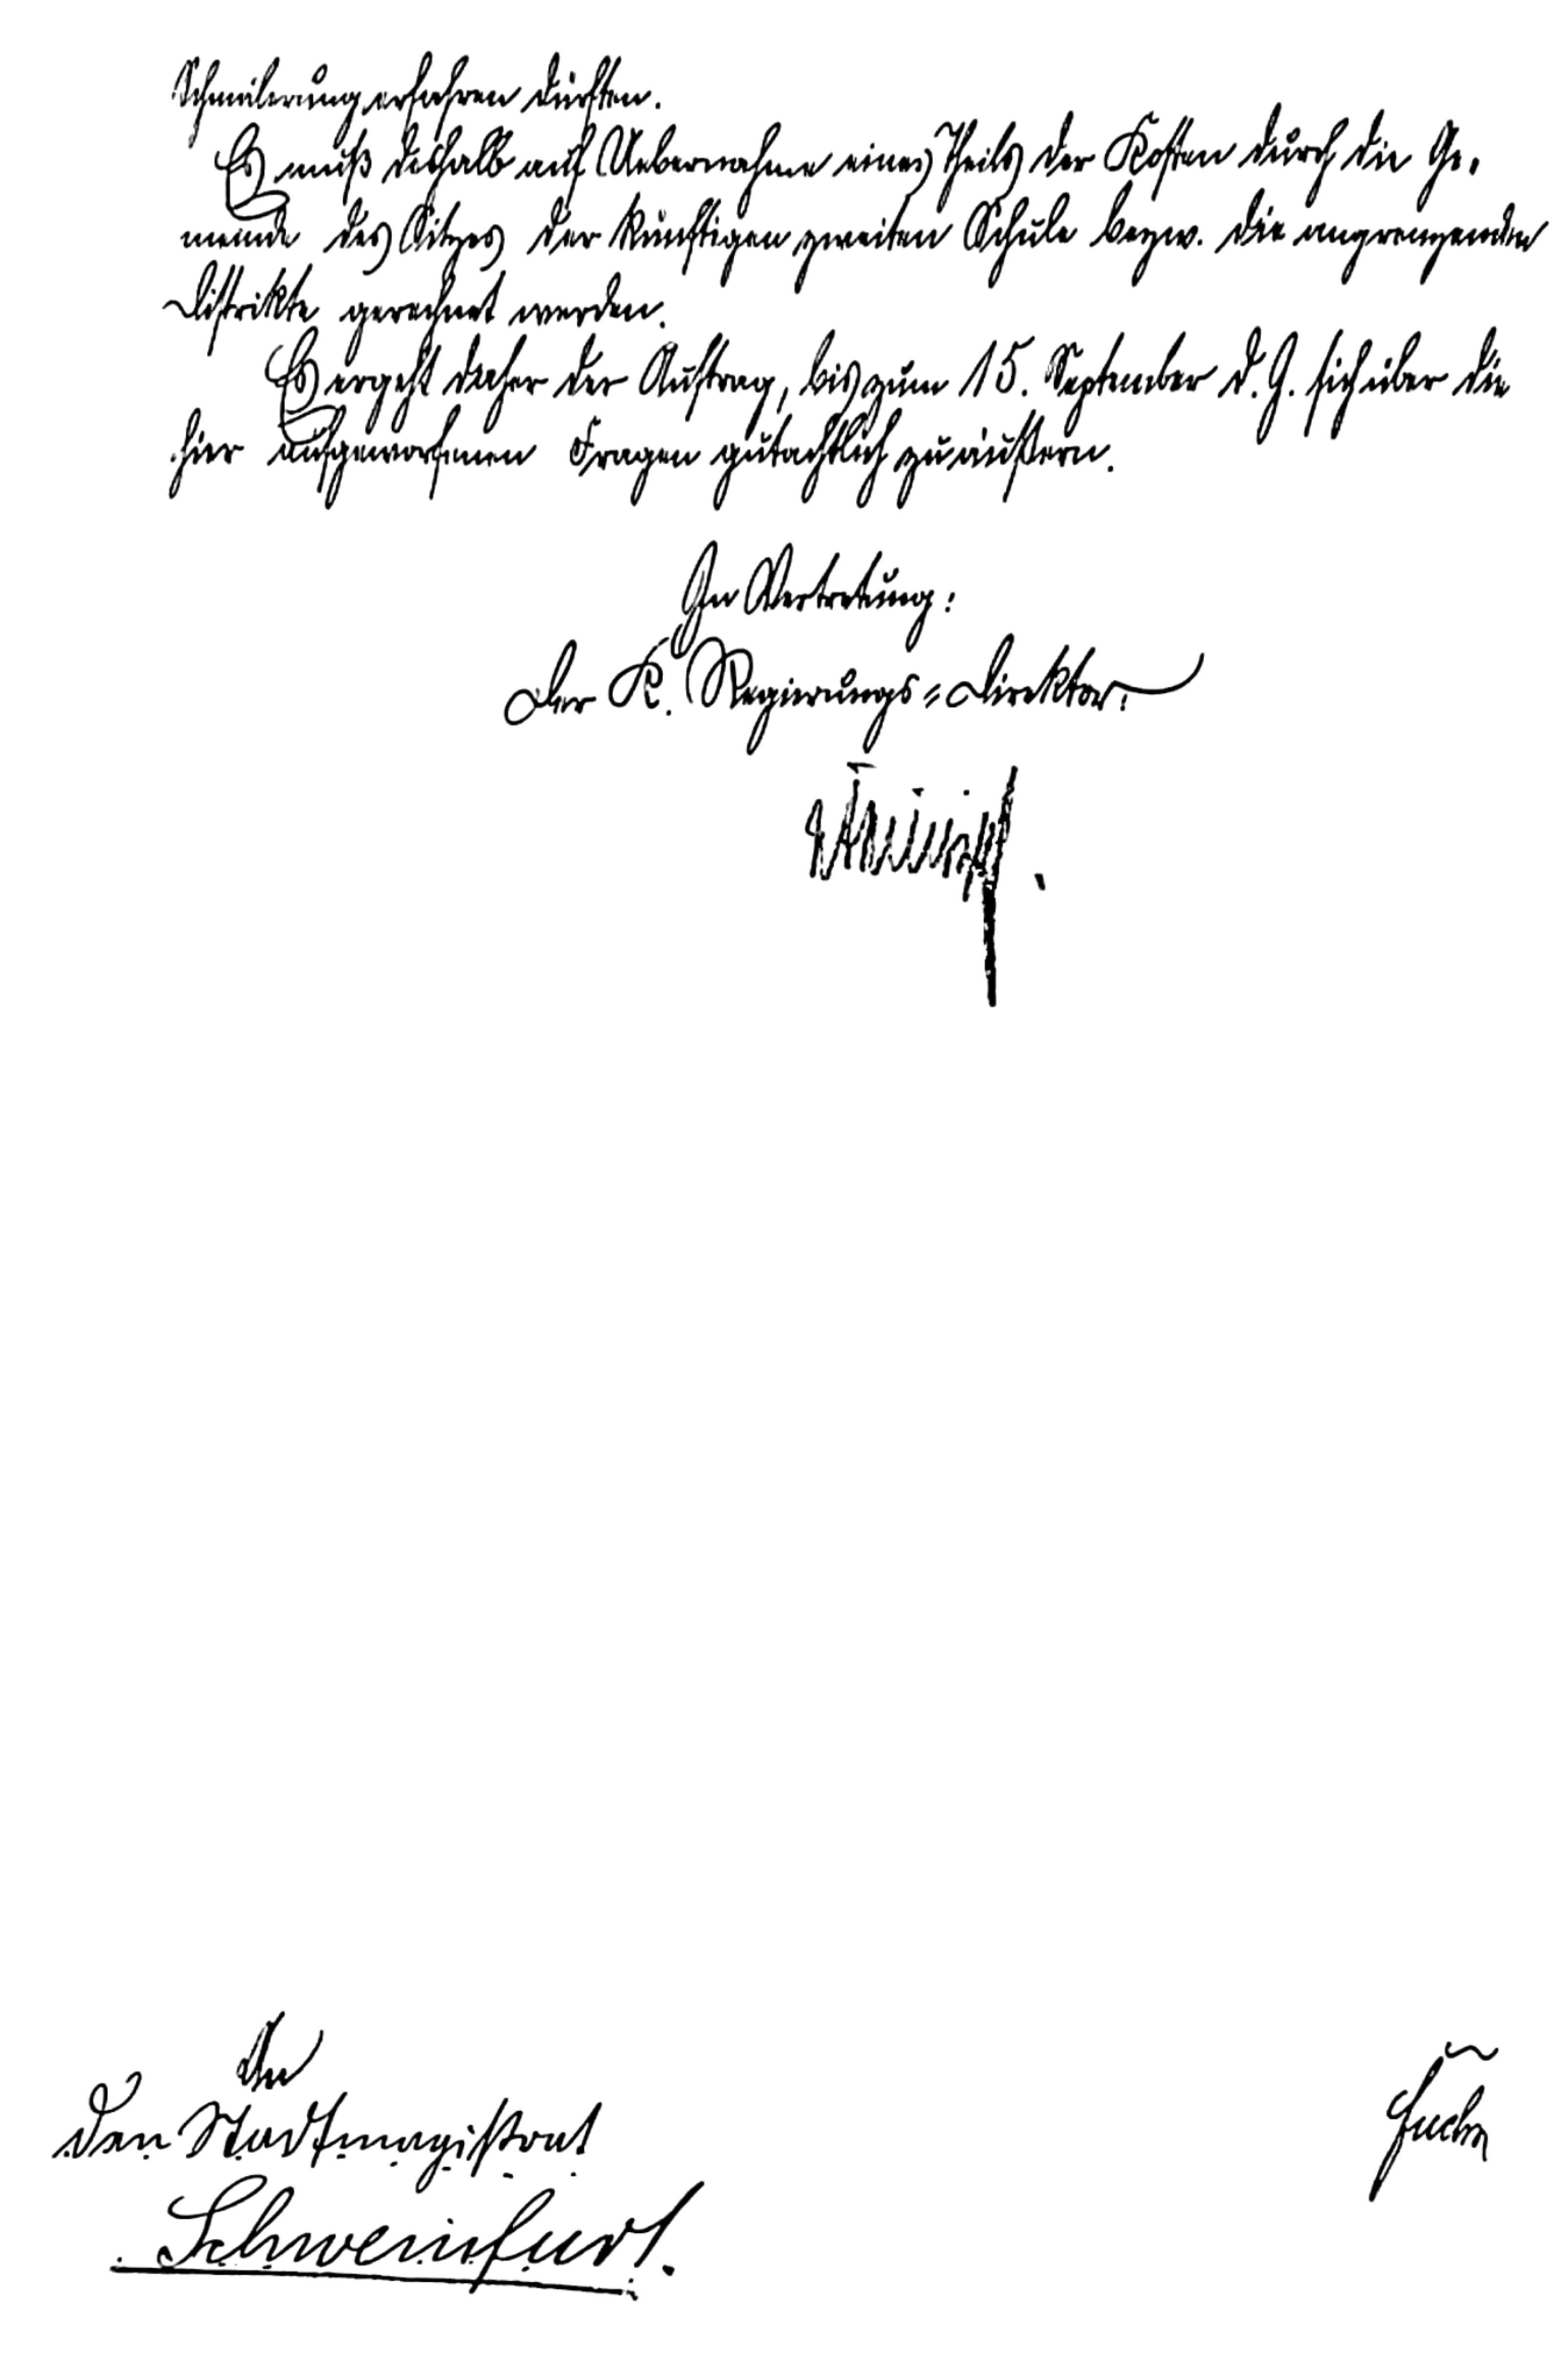 Schmälerung erfahren dürften.
Es muß deshalb auf Uebernahme eines Theils der Kosten durch die Ge-
meinde des Sitzes der künftigen zweiten Schule bezw. die angrenzenden
Distrikte gerechnet werden.
Es ergeht daher der Auftrag, bis zum 15. September d. J. sich über die
hier aufgeworfenen Fragen gutachtlich zu äußern.
In Vertretung:
Der K. Regierungs-Direktor.
An
den Stadtmagistrat
Schweinfurt.